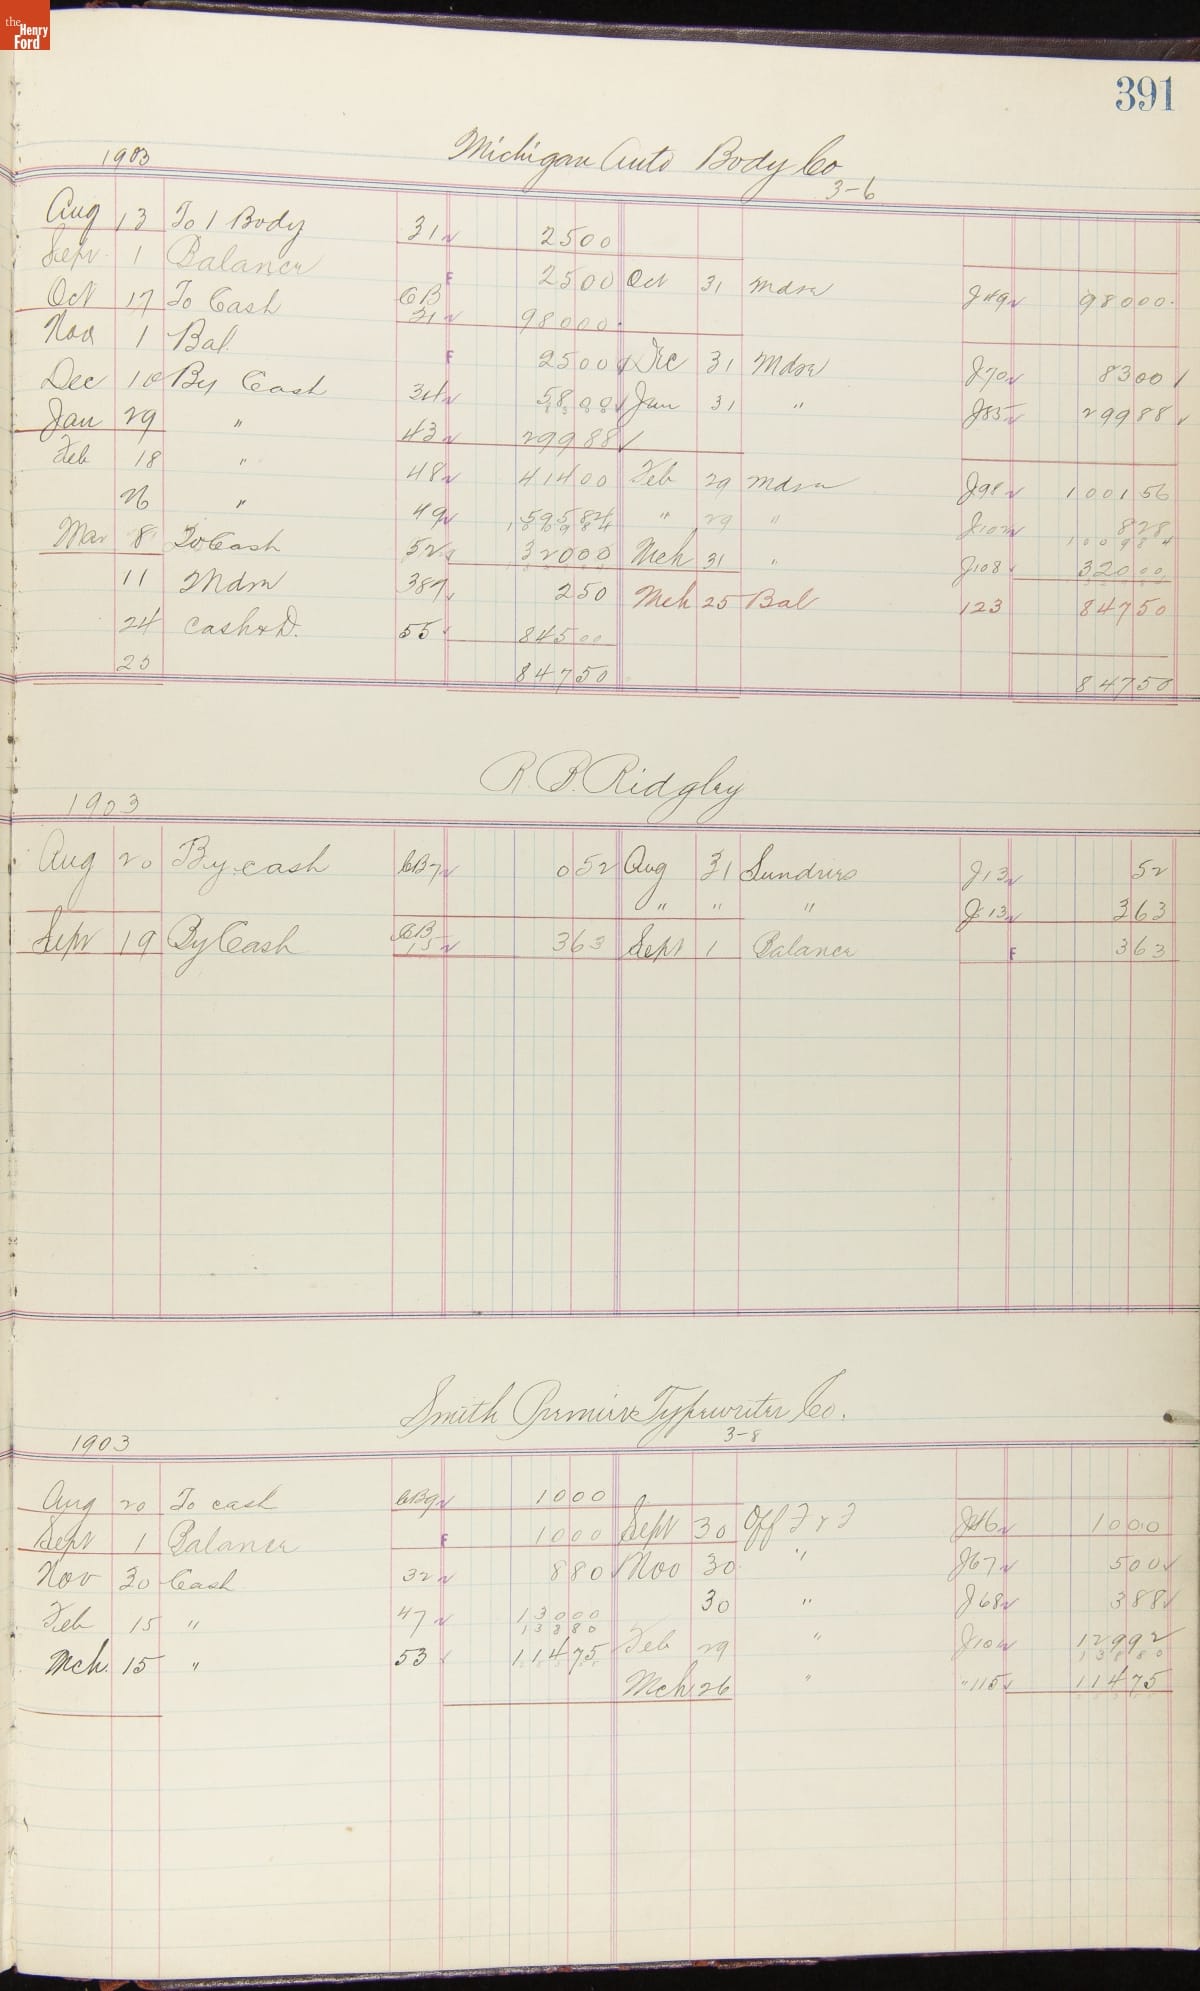 the Henry Ford
391
1903 Michigan Auto Body Co
3-6
Aug 13 To 1 Body 31 2500
Sept 1 Balance F 2500 Oct 31 Mdse J49 98000
Oct 17 To Cash CB 21 98000
Nov 1 Bal. F 2500 Dec 31 Mdse J70 8300
Dec 10 By Cash 34 5800 Jan 31 " J85 29988
Jan 29 " 43 29988
Feb 18 " 48 41400 Feb 29 Mdse J98 100156
26 " 49 59584 " 29 " 828
100984 100984
Mar 8 To Cash 52 32000 Mch 31 " J108 32000
11 Mdse 387 250 Mch 25 Bal 123 84750
24 Cash & D. 55 84500
25 84750 84750
R. P. Ridgley
1903
Aug 20 By cash CB7 052 Aug 31 Sundries J13 52
" " " J13 363
Sept 19 By Cash CB 15 363 Sept 1 Balance F 363
Smith Premier Typewriter Co.
1903 3-8
Aug 20 To cash CB9 1000
Sept 1 Balance F 1000 Sept 30 Off F & F J46 1000
Nov 30 Cash 32 880 Nov 30 " J67 500
30 " J68 388
Feb 15 " 47 13000
13880 Feb 29 " 12992
13880
Mch. 15 " 53 11475
Mch 26 " " 115 11475